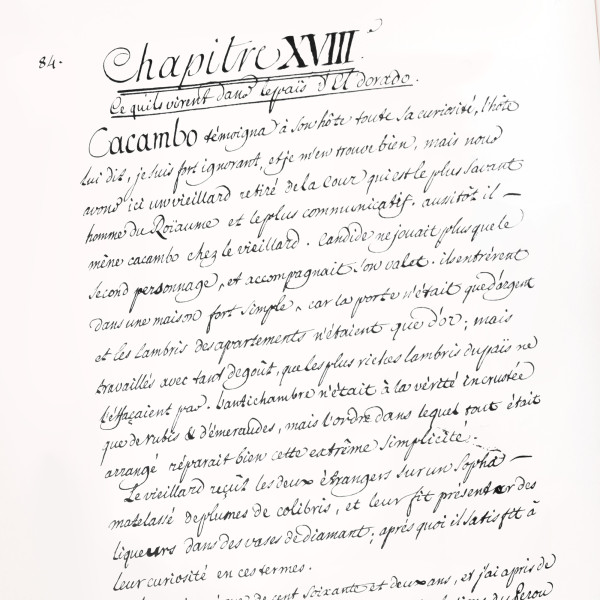 84.
Chapitre XVIII.
Ce qu'ils virent dans le païs d'El dorado.
Cacambo témoigna à son hôte toute sa curiosité, l'hôte
lui dit, je suis fort ignorant, et je m'en trouve bien, mais nous
avons ici un vieillard retiré de la Cour qui est le plus savant
homme du Roïaume et le plus communicatif. aussitôt il —
mène cacambo chez le vieillard. Candide ne jouait plus que le
second personnage, et accompagnait son valet. ils entrèrent
dans une maison fort simple, car la porte n'était que d'argent
et les lambris des apartements n'étaient que d'or; mais
travaillés avec tant de goût, que les plus riches lambris du païs ne
l'éffaçaient pas. l'antichambre n'était à la vérité incrustée
que de rubis & d'émeraudes, mais l'ordre dans lequel tout était
arrangé réparait bien cette extrême simplicité.
Le vieillard reçut les deux étrangers sur un sopha —
matelassé de plumes de colibris, et leur fit présenter des
liqueurs dans des vases de diamant; après quoi il satisfit à
leur curiosité en ces termes.
de cent soixante et deux ans, et j'ai apris de
du Perou